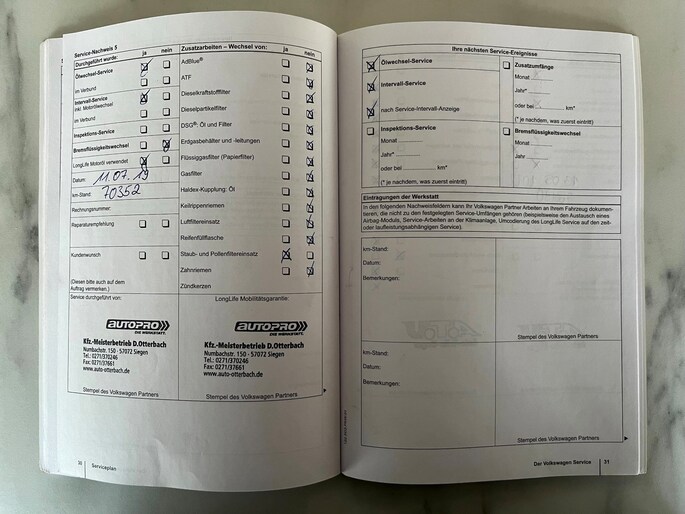 Service-Nachweis 5
Durchgeführt wurde: ja nein
Ölwechsel-Service
im Verbund
Intervall-Service
inkl. Motorölwechsel
im Verbund
Inspektions-Service
Bremsflüssigkeitswechsel
LongLife Motoröl verwendet
Datum: 11.07.19
km-Stand: 70352
Rechnungsnummer:
Reparaturempfehlung
Kundenwunsch
(Diesen bitte auch auf dem
Auftrag vermerken.)
Zusatzarbeiten – Wechsel von: ja nein
AdBlue®
ATF
Dieselkraftstofffilter
Dieselpartikelfilter
DSG®: Öl und Filter
Erdgasbehälter und -leitungen
Flüssiggasfilter (Papierfilter)
Gasfilter
Haldex-Kupplung: Öl
Keilrippenriemen
Luftfiltereinsatz
Reifenfüllflasche
Staub- und Pollenfiltereinsatz
Zahnriemen
Zündkerzen
Service durchgeführt von:
AUTOPRO
DIE WERKSTATT.
Kfz.-Meisterbetrieb D.Otterbach
Numbachstr. 150 - 57072 Siegen
Tel.: 0271/370246
Fax: 0271/37661
www.auto-otterbach.de
Stempel des Volkswagen Partners
LongLife Mobilitätsgarantie:
AUTOPRO
DIE WERKSTATT.
Kfz.-Meisterbetrieb D.Otterbach
Numbachstr. 150 - 57072 Siegen
Tel.: 0271/370246
Fax: 0271/37661
www.auto-otterbach.de
Stempel des Volkswagen Partners
30 Serviceplan
Ihre nächsten Service-Ereignisse
Ölwechsel-Service
Intervall-Service
nach Service-Intervall-Anzeige
Inspektions-Service
Monat
Jahr*
oder bei km*
(* je nachdem, was zuerst eintritt)
Zusatzumfänge
Monat
Jahr*
oder bei km*
(* je nachdem, was zuerst eintritt)
Bremsflüssigkeitswechsel
Monat
Jahr
Eintragungen der Werkstatt
In den folgenden Nachweisfeldern kann Ihr Volkswagen Partner Arbeiten an Ihrem Fahrzeug dokumen-
tieren, die nicht zu den festgelegten Service-Umfängen gehören (beispielsweise den Austausch eines
Airbag-Moduls, Service-Arbeiten an der Klimaanlage, Umcodierung des LongLife Service auf den zeit-
oder laufleistungsabhängigen Service).
km-Stand:
Datum:
Bemerkungen:
Stempel des Volkswagen Partners
km-Stand:
Datum:
Bemerkungen:
Stempel des Volkswagen Partners
Der Volkswagen Service 31